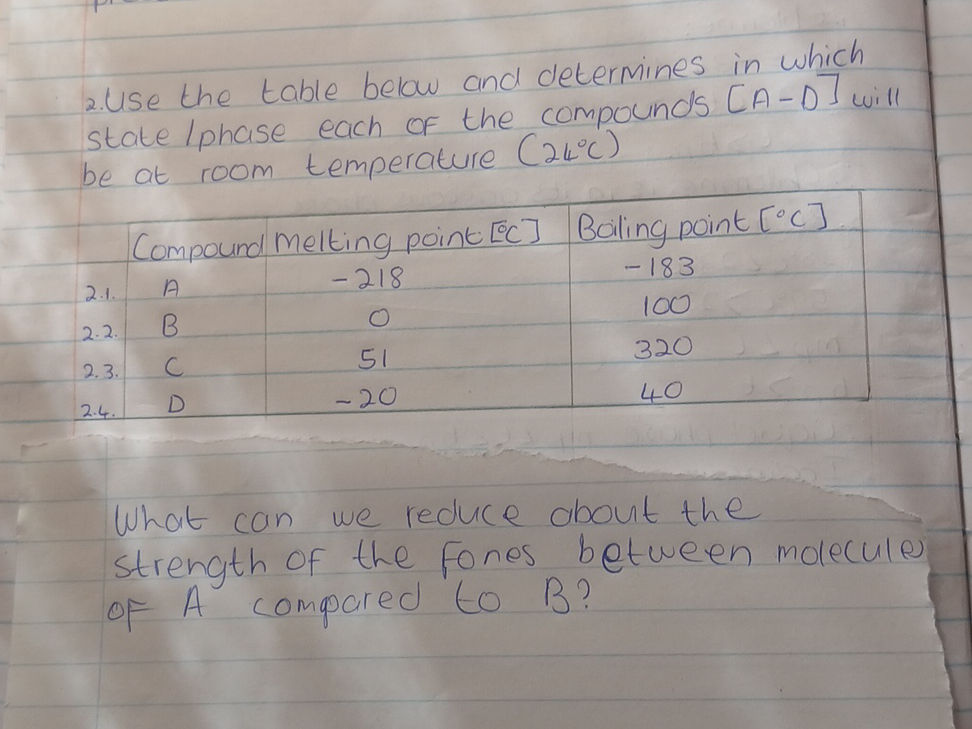 2. Use the table below and determines in which
state / phase each of the compounds [A-D] will
be at room temperature (24°C)
Compound Melting point [°C] Boiling point [°C]
2.1. A -218 -183
2.2. B 0 100
2.3. C 51 320
2.4. D -20 40
What can we reduce about the
strength of the fones between molecule
of A compared to B?